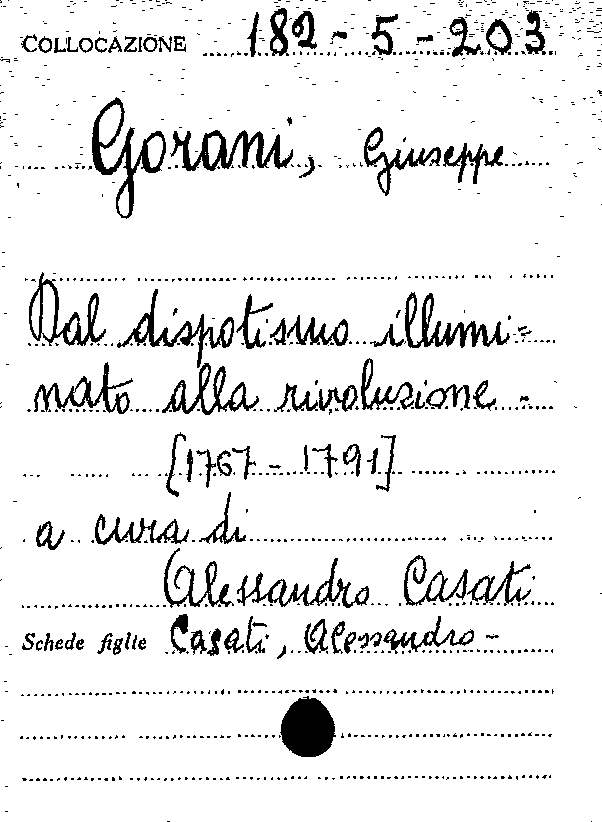 COLLOCAZIONE 182-5-203
Gorani, Giuseppe
Dal dispotismo illumi=
nato alla rivoluzione -
[1767-1791]
a cura di
Alessandro Casati
Schede figlie Casati, Alessandro-